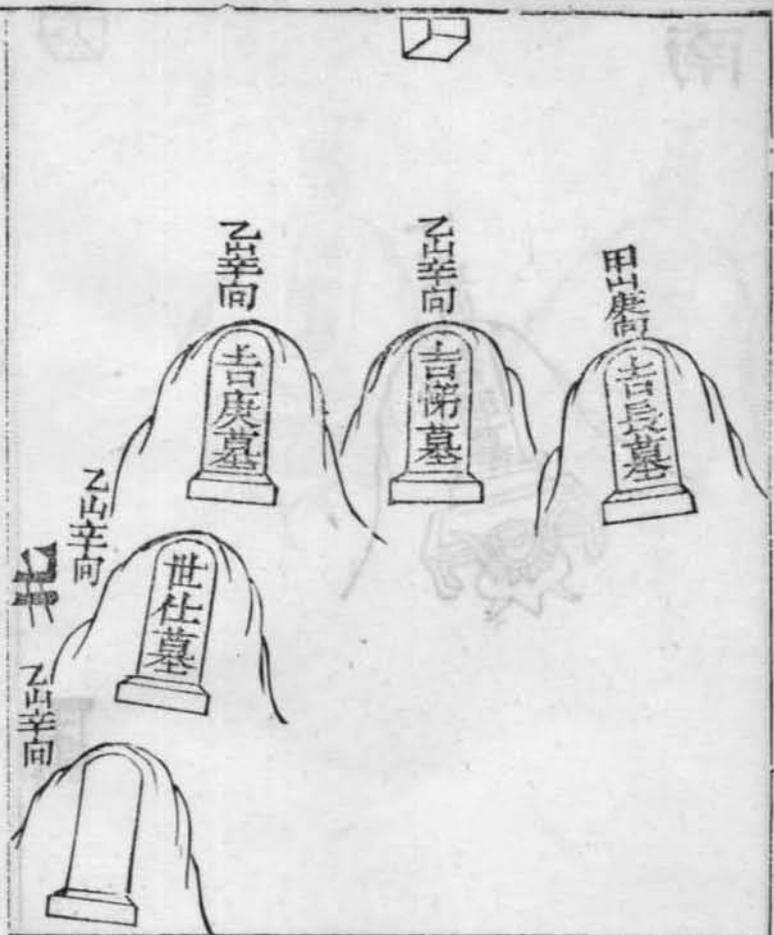 甲山庚向
吉長墓
乙山辛向
吉悌墓
乙山辛向
吉庚墓
乙山辛向
世仕墓
北
乙山辛向